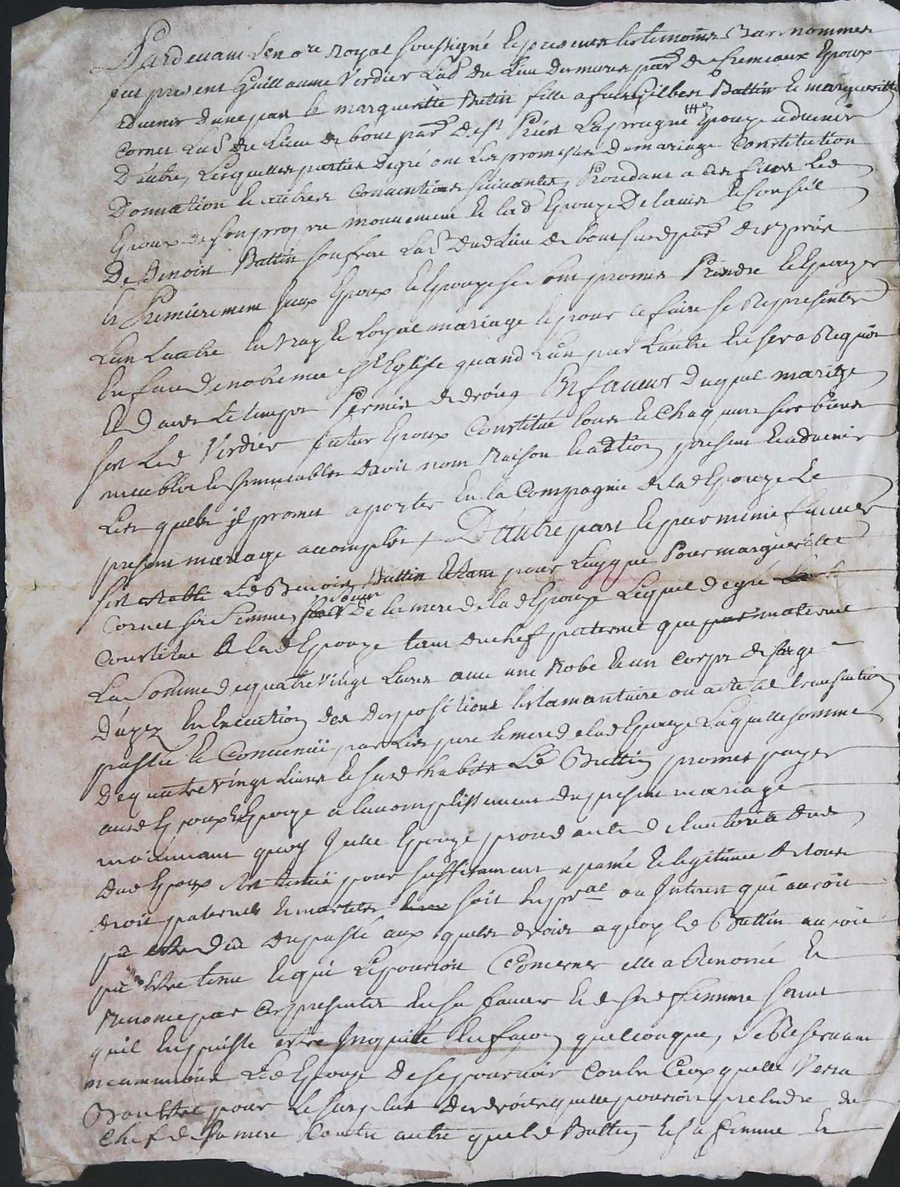 Pardevant le no.re Royal soussigné et presents les temoins bas nommes
fut present Guillaume Verdier Lab. du lieu de mures par. de Cremeaux Epoux
advenir d'une part et margueritte Batin fille a feu Gilbert Battin et marguerite
Cornet Lab. du Lieu de bout par. de St Priest Laprugne Epouze advenir
D'autre, Lesquelles parties degré ont les promesses de mariage Constitution
Donnation et autres Conventions suivantes, Procedant a ces fins Led
Epoux de son propre mouvement et lad Epouze De lavis et Conseil
De Benoit Battin son frere Lab. dud Lieu de bout susd par. de St Priest
Et Premierement Iceux Epoux et Epouze se sont promis Prendre et Epouzer
Lun Lautre En vray et Loyal mariage et pour ce faire se Representer
En face de notre mere Ste Eglise quand Lun par Lautre En sera Requis
Et dans le temps Permis de droit En faveur duquel mariage
sest Led Verdier futur Epoux Constitué tous et Chaquns ses biens
meubles et Immeubles droit nom Raison et action present et advenir
Lesquels il promet aporter En la Compagnie de lad Epouze Le
present mariage acomplis / D'autre part et par mesme faveur
sest Estably Led Benoit Battin et tant pour Luy que Pour marguerite
Cornet sa femme soeur De la mere de lad Epouze Lequel de gré
Constitue a lad Epouze tant du chef paternel que maternel
La somme de quatre vingt Livres avec une Robe et un Corps de sarge
D'uzez En Execution des dispositions testamentaire ou acte de transaction
passée et Convenüe par Les pere et mere de lad Epouze Laquelle somme
De quatre vingt Livres et susd habits Le Battin promet payer
aud Epoux et Epouze a lacomplissement du present mariage
moiennant quoy Icelle Epouze procedante de lautorité dud
dud Epoux sest tenüe pour suffisament apanée et legitimée de tous
droit paternels et maternels soit En p.al ou Interest qui auroit
pu du passé aux quels droits a quoy led Battin auroit
pu Estre tenu et qui Le pouroit Concerner elle a Renoncé et
Renonce par ces presentes En sa faveur et de sad femme sans
quil En puisse estre Inquieté En façon quelconque, se Reservant
neanmoins Lad Epouze De se pourvoir Contre Ceux quelle Verra
Bon Estre pour Le surplus des droits quelle pouroit pretendre du
Chef de sa mere Contre autre que led Battin et sa femme et